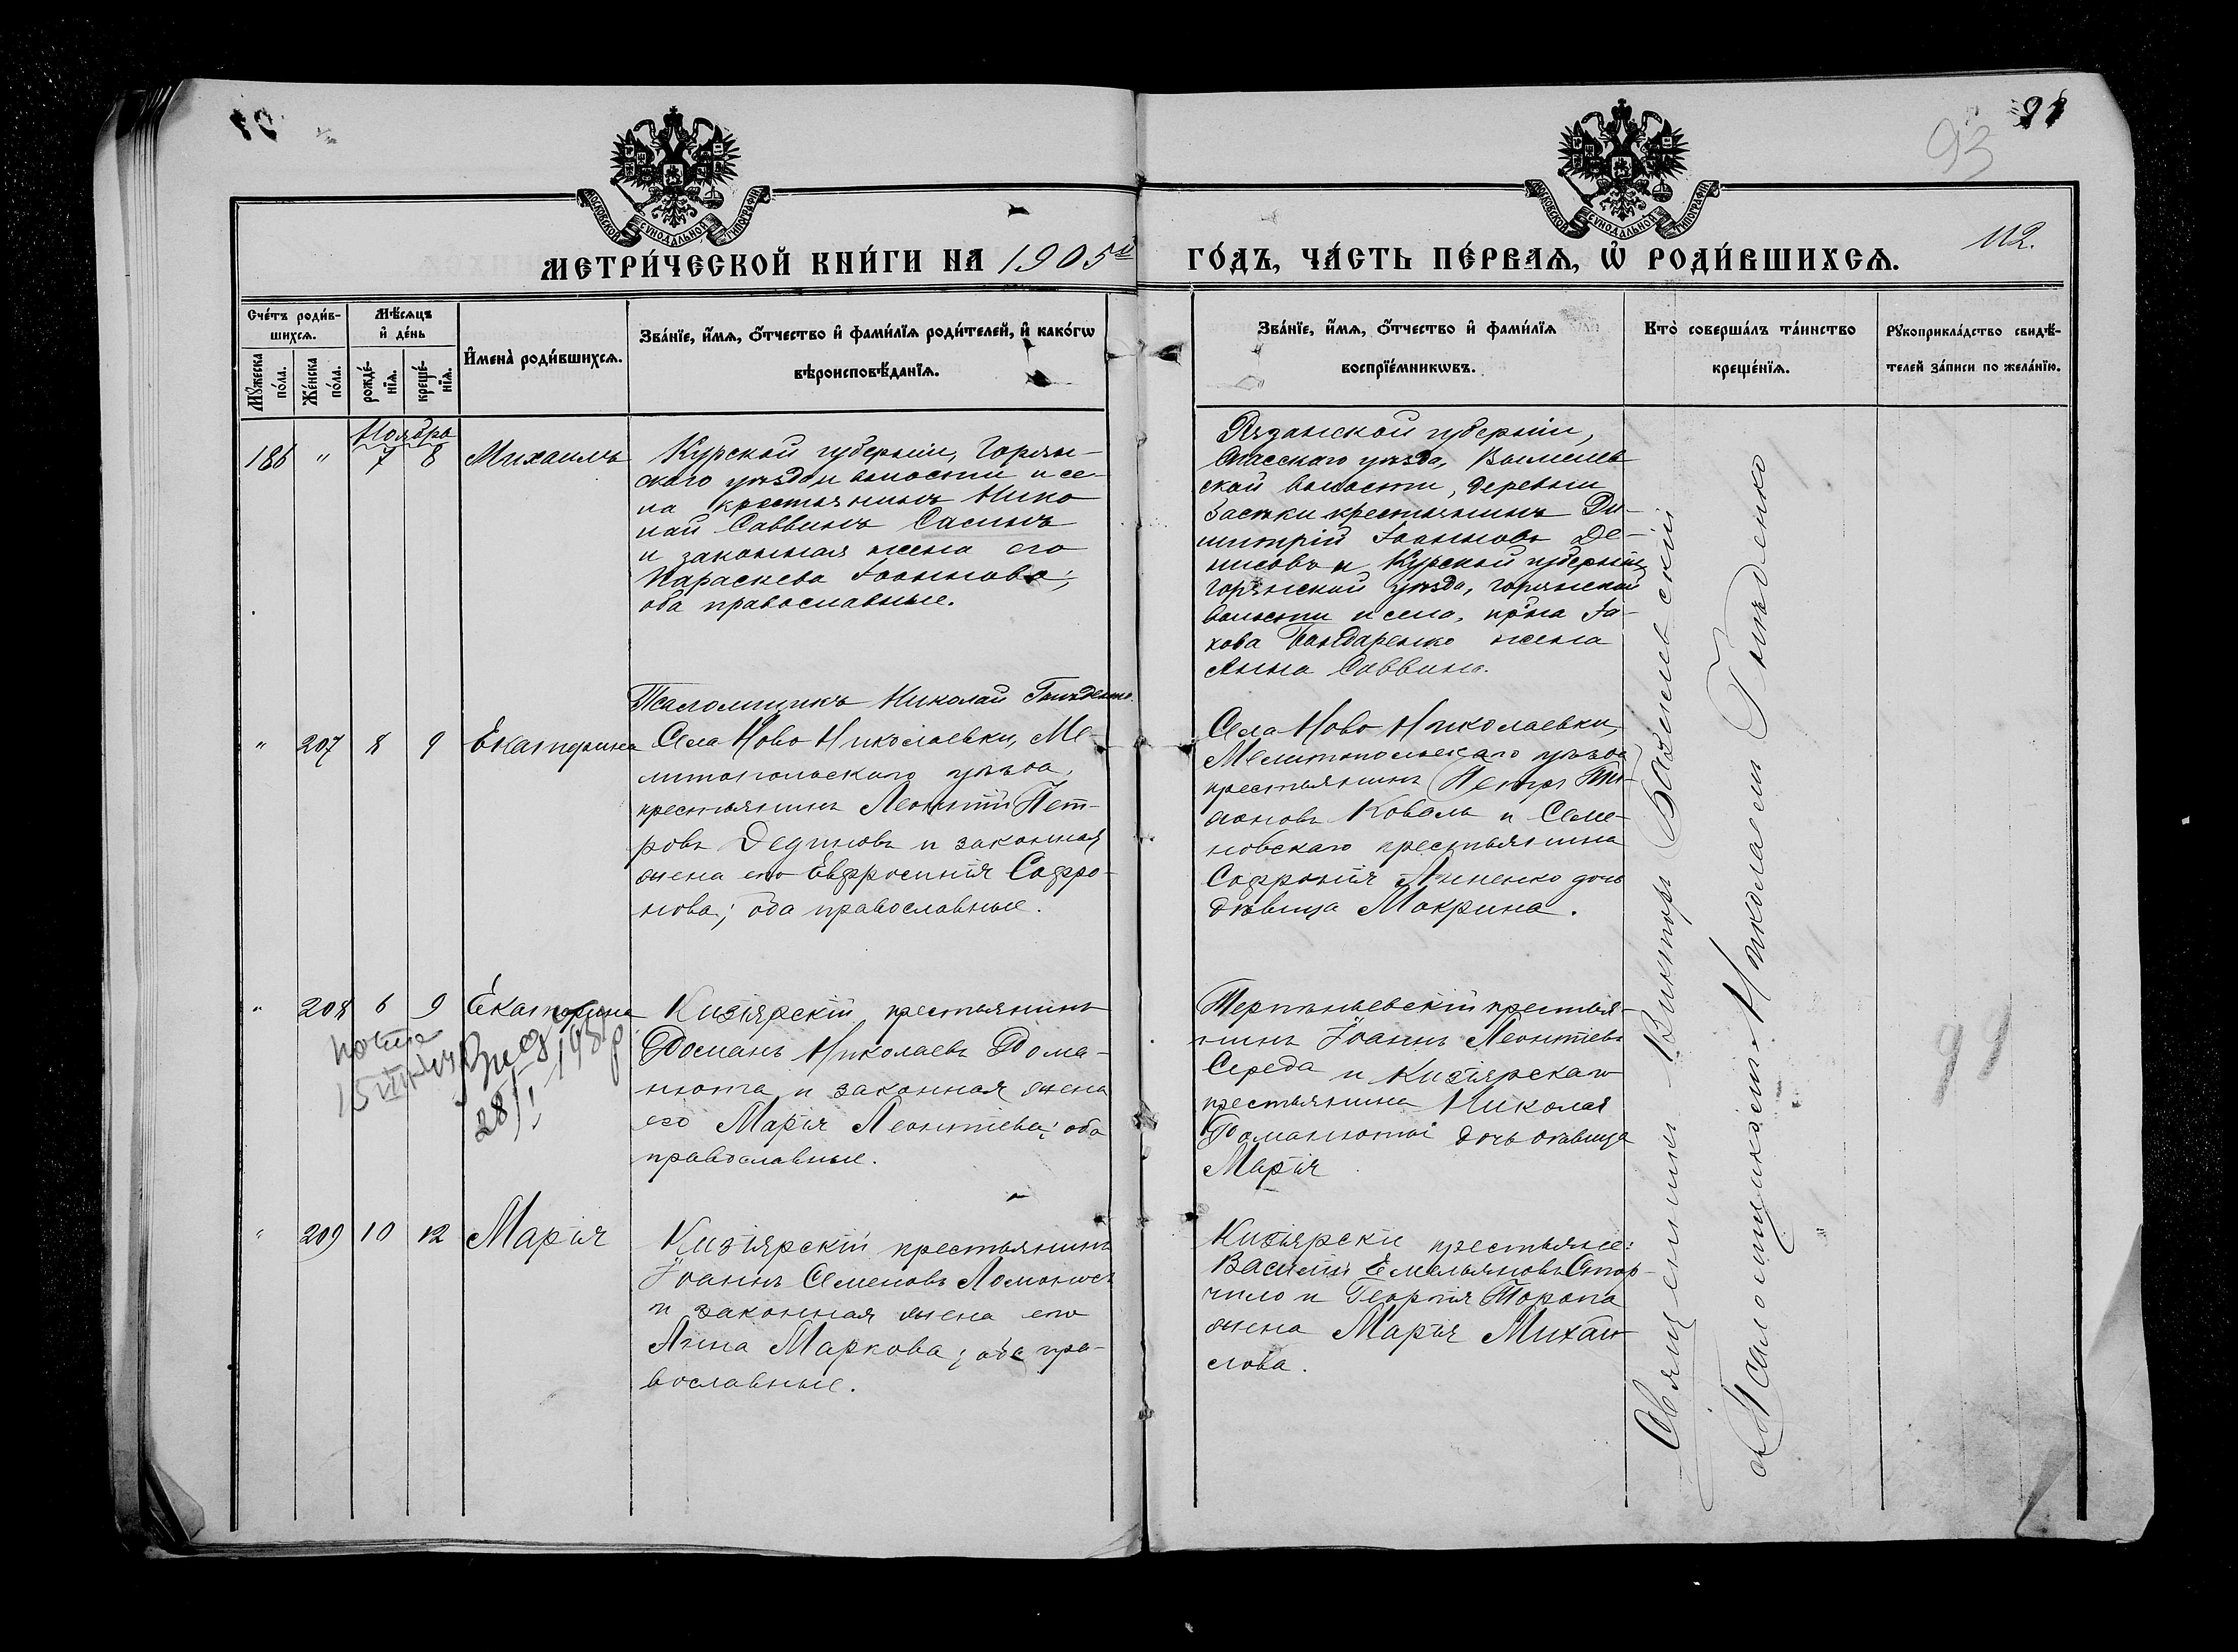 93
91
МОСКОВСКОЙ СѴНОДАЛЬНОЙ ТИПОГРАФІИ
МОСКОВСКОЙ СѴНОДАЛЬНОЙ ТИПОГРАФІИ
МЕТРИ́ЧЕСКОЙ КНИ́ГИ НА 1905й
ГО́ДЪ, ЧА́СТЬ ПЕ́РВАѦ, Ѡ҆ РОДИ́ВШИХСѦ.
112.
Сче́тъ роди́в-
шихсѧ.
Мꙋ́жеска по́ла.
Же́нска по́ла.
Мѣ́сѧцъ
и҆ де́нь
рожде́-
нїѧ.
креще́-
нїѧ.
И҆мена̀ роди́вшихсѧ.
Зва́нїе, и҆́мѧ, ѻ҆́тчество и҆ фами́лїѧ роди́телей, и҆ како́гѡ
вѣроисповѣ́данїѧ.
Зва́нїе, и҆́мѧ, ѻ҆́тчество и҆ фами́лїѧ
воспрїе́мникѡвъ.
Кто̀ соверша́лъ та́инство
креще́нїѧ.
Рꙋкоприкла́дство свидѣ́-
телей за́писи по жела́нїю.
Ноября
186 " 7 8 Михаилъ
Курской губерніи, Горян-
скаго уѣзда и волости и се-
ла крестьянинъ Нико
лай Саввинъ Сасинъ
и законная жена его
Параскева Іоаннова;
оба православные.
Рязанской губерніи,
Спасскаго уѣзда,
ской волости, деревни
крестьянинъ Ди-
митрій Іоанновъ Де-
нисовъ и Курской губерніи
Горянской уѣзда, горянской
волости и села, кр-на Іа-
кова Бондаренко жена
Анна Саввина.
Псаломщикъ Николай Гнѣденко
" 207 8 9 Екатерина
Села Ново Николаевки, Ме-
литопольскаго уѣзда,
крестьянинъ Леонтій Пет-
ровъ Дединовъ и законная
жена его Евфросинія Софро-
нова; оба православные.
Села Ново Николаевки,
Мелитопольскаго уѣзда
крестьянинъ Петръ
Коваль и Семе-
новскаго крестьянина
Софронія дочь
дѣвица Макрина.
" 208 6 9 Екатерина
28/I 193
Кизіярскій крестьянинъ
Романъ Николаевъ Рома-
нюта и законная жена
его Марія Леонтіева; оба
православные.
Терпѣньевскій крестья-
нинъ Іоаннъ Леонтіевъ
Середа и Кизіярскаго
крестьянина Николая
Романюты дочь дѣвица
Марія
99
" 209 10 12 Марія
Кизіярскій крестьянинъ
Іоаннъ Семеновъ Ломоносъ
и законная жена его
Анна Маркова; оба пра-
вославные.
Кизіярскіе крестьяне:
Василій Емельяновъ Стор-
чило и Георгія Торопа
жена Марія Михаи-
лова.
Священникъ Викторъ Баженевскій
Псаломщикъ Николай Гнѣденко